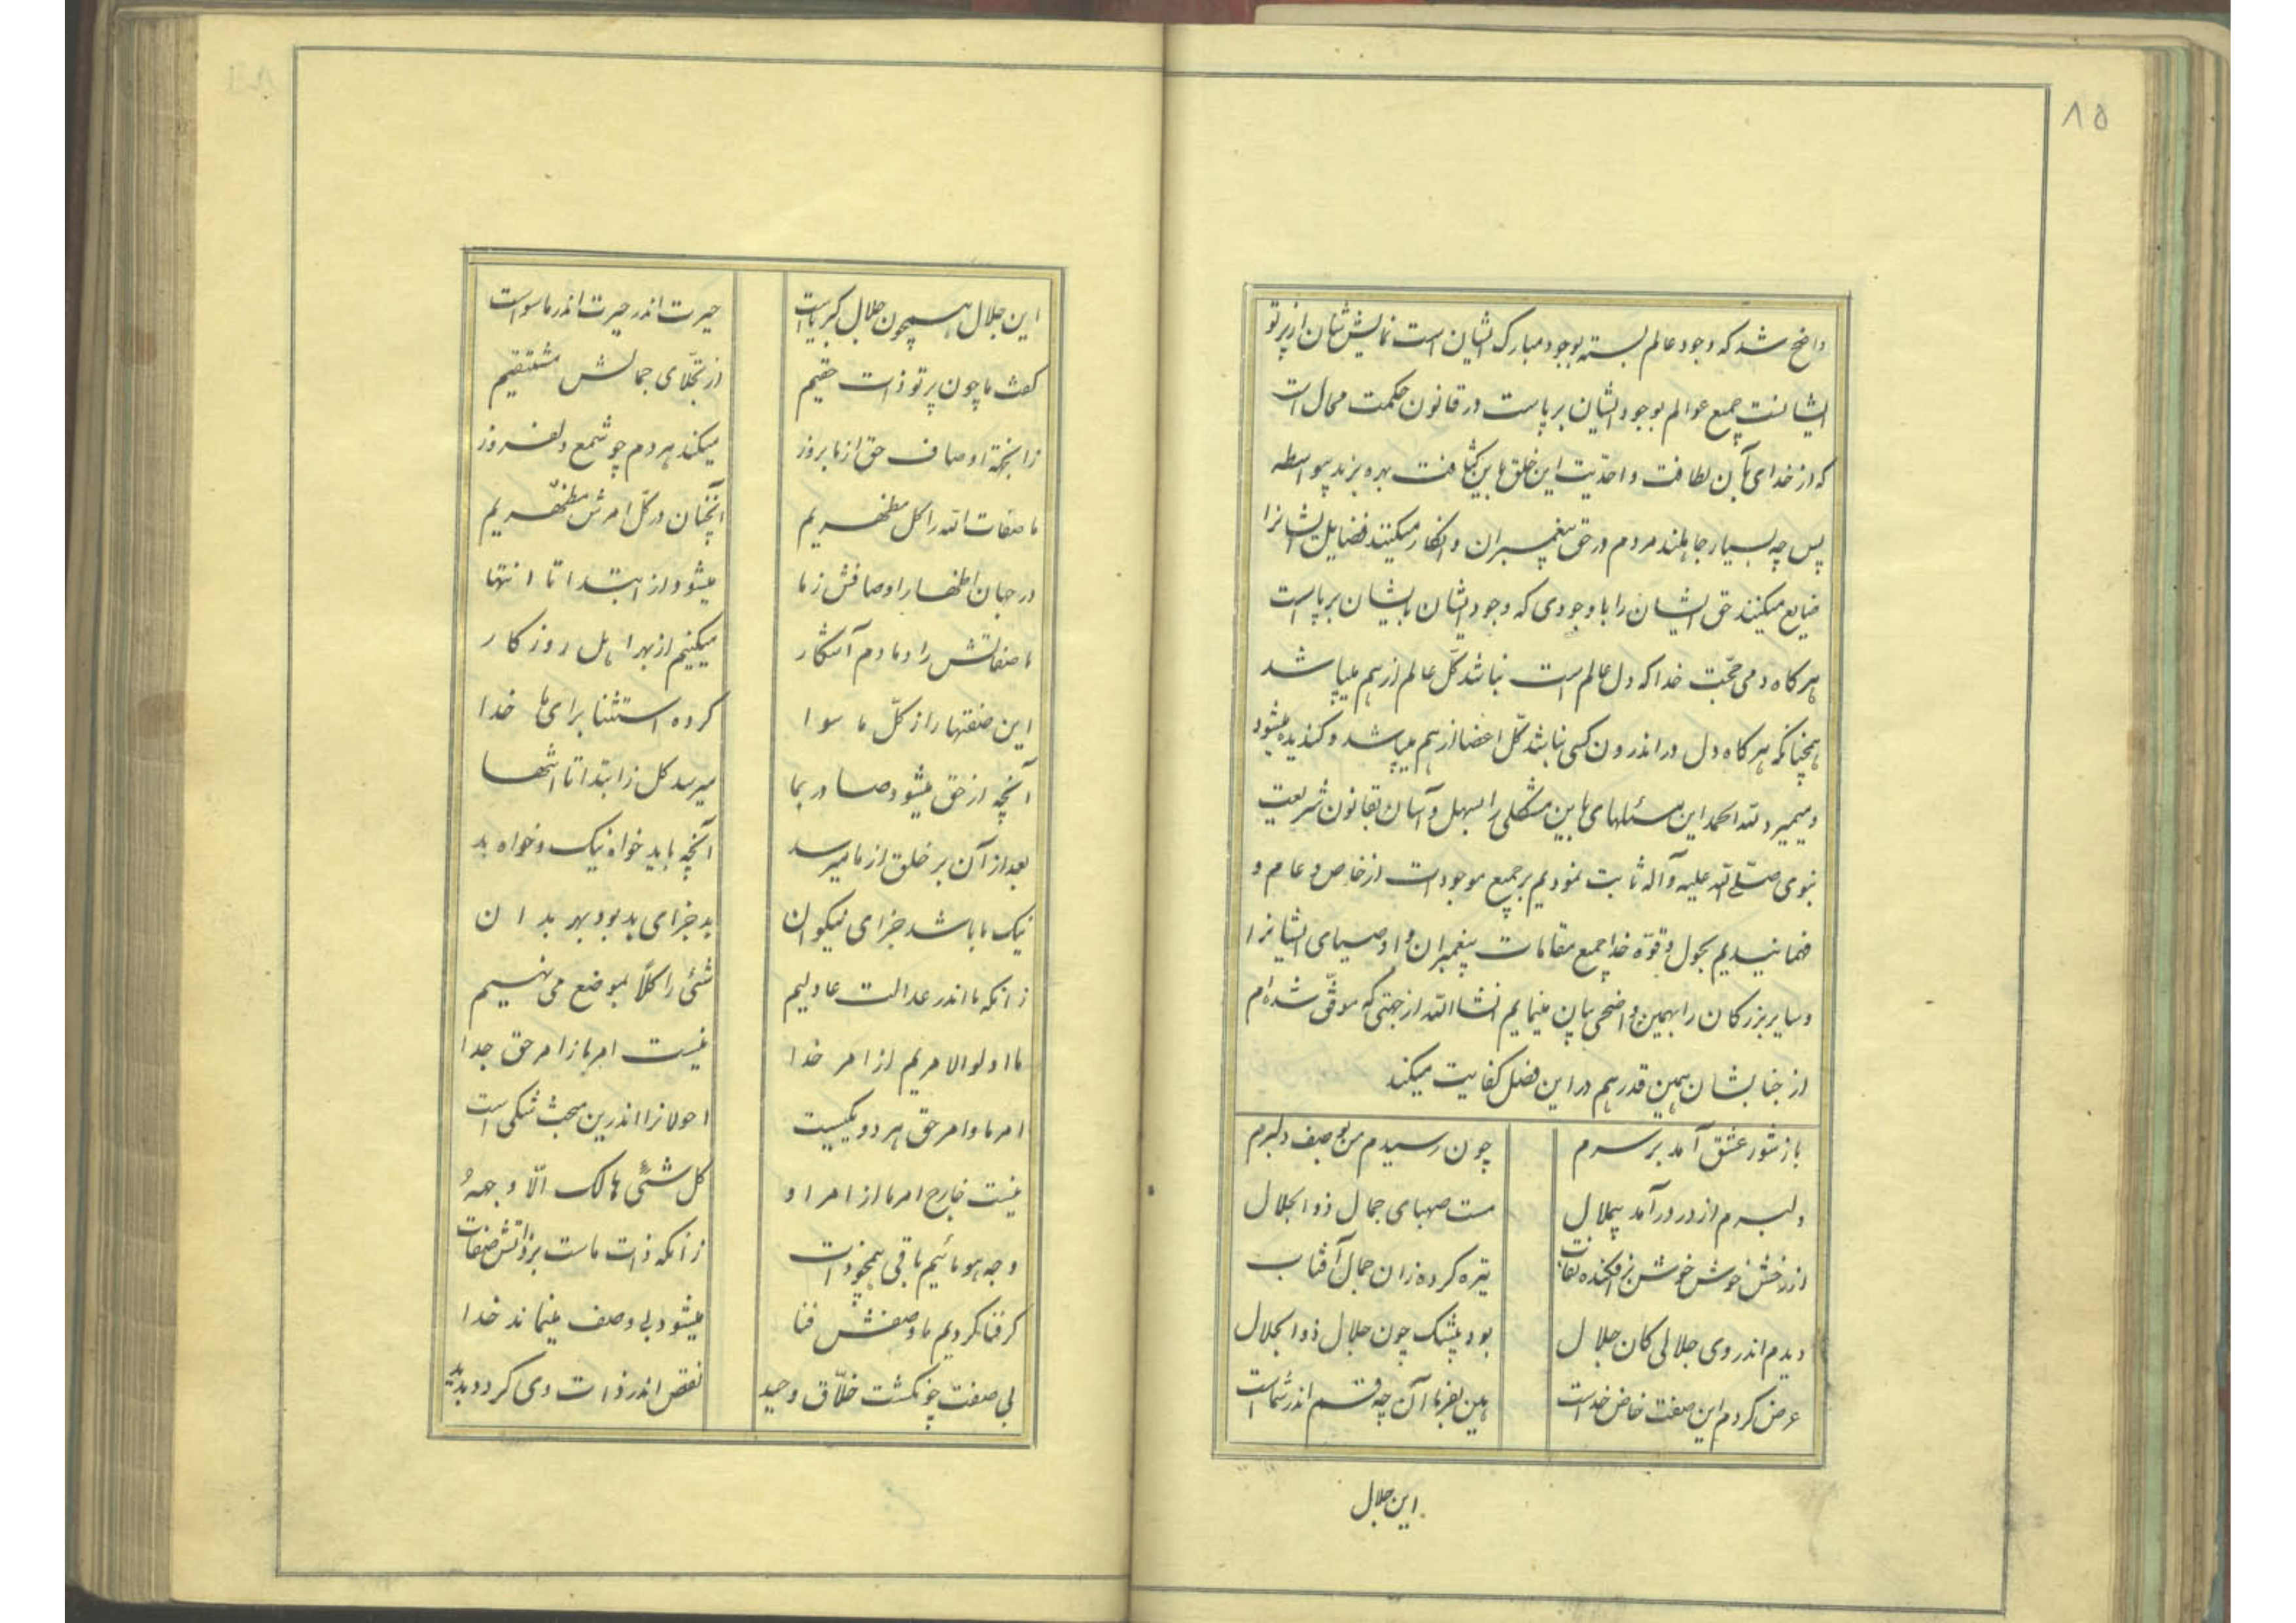 ۸۵
واضح شد که وجود عالم بسته بوجود مبارک ایشان است نمایش شان از پرتو
ایشانست جمیع عوالم بوجود ایشان برپاست در قانون حکمت محال است
که از خدای بآن لطافت و احدّیت این خلق باین کثافت بهره برند بیواسطه
پس چه بسیار جاهلند مردم در حق پیغمبران و انکار میکنند فضایل ایشانرا
ضایع میکنند حق ایشان را با وجودی که وجود ایشان بایشان برپاست
هر کاه دمی محبّت خدا که دل عالم است نباشد کلّ عالم از هم میپاشد
همچنانکه هر کاه دل در اندرون کسی نباشد کلّ اعضا از هم میپاشد و کندیده میشود
و میمیرد لله الحمد این مسئلهای باین مشکلی را بسهل و آسان بقانون شریعت
نبوی صلّی الله علیه و آله ثابت نمودیم بر جمیع موجودات از خاص و عام و
فهمانیدیم بحول و قوّة خدا جمیع مقامات پیغمبران و اوصیای ایشانرا
و سایر بزرکان را بهمین واضحی بیان مینمایم انشاالله از جهتی که موفّق شده‌ام
از جنابشان همین قدر هم در این فصل کفایت میکند
باز شور عشق آمد بر سرم چون رسیدم من بوصف دلبرم
دلبرم از در در آمد بیملال مست صهبای جمال ذو الجلال
از رخش خوش خوش بر افکنده نقاب تیره کرده زان جمال آفتاب
دیدم اندر وی جلالی کان جلال بود بیشک چون جلال ذو الجلال
عرض کردم این صفت خاص خداست هین بفرما آن چه قسم اندر شماست
این جلال
این جلال همچون جلال کبریاست حیرت اندر حیرت اندر ماسواست
کفت ما چون پرتو ذات حقیم از تجلّای جمالش مشتقیم
زانجهة اوصاف حق از ما بروز میکند هر دم چو شمع دلفروز
ما صفات الله را کل مظهریم آنچنان در کلّ امرش مظهریم
در جهان اظهار اوصافش ز ما میشود از ابتدا تا انتها
ما صفاتش را دمادم آشکار میکنیم از بهر اهل روزکار
این صفتها را ز کلّ ما سوا کرده استثنا برای ما خدا
آنچه از حق میشود صادر بما میرسد کل ز ابتدا تا انتها
بعد از آن بر خلق از ما میرسد آنچه باید خواه نیک و خواه بد
نیک ما باشد جزای نیکوان بد جزای بد بود بهر بدان
زانکه ما اندر عدالت عادلیم شئی را کلاً بموضع می نهیم
ما اولو الامریم از امر خدا نیست امر ما ز امر حق جدا
امر ما و امر حق هر دو یکیست احولانرا اندرین مبحث شکی است
نیست خارج امر ما از امر او کل شئیٍ هالک الّا وجههُ
وجه هو مائیم باقی همچو ذات زانکه ذات ماست بر ذاتش صفات
کر فنا کردیم ما وصفش فنا میشود بی وصف مینماند خدا
بی صفت چونکشت خلّاق وحید نقص اندر ذات وی کردد پدید